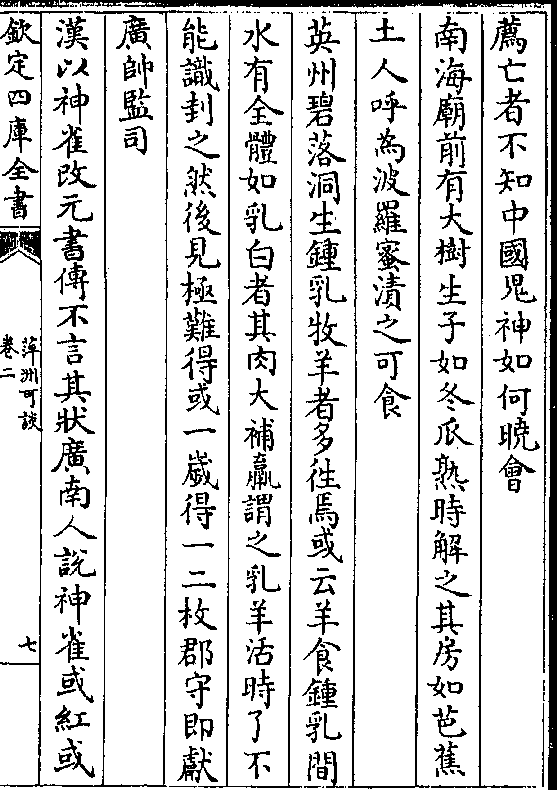 薦亡者不知中國鬼神如何曉會
南海廟前有大樹生子如冬瓜熟時解之其房如芭蕉
土人呼為波羅蜜漬之可食
英州碧落洞生鍾乳牧羊者多徃焉或云羊食鍾乳間
水有全體如乳白者其肉大補羸謂之乳羊活時了不
能識刲之然後見極難得或一嵗得一二枚郡守即獻
廣帥監司
漢以神雀改元書傳不言其狀廣南人說神雀或紅或
欽定四庫全書
萍洲可談
卷二
七